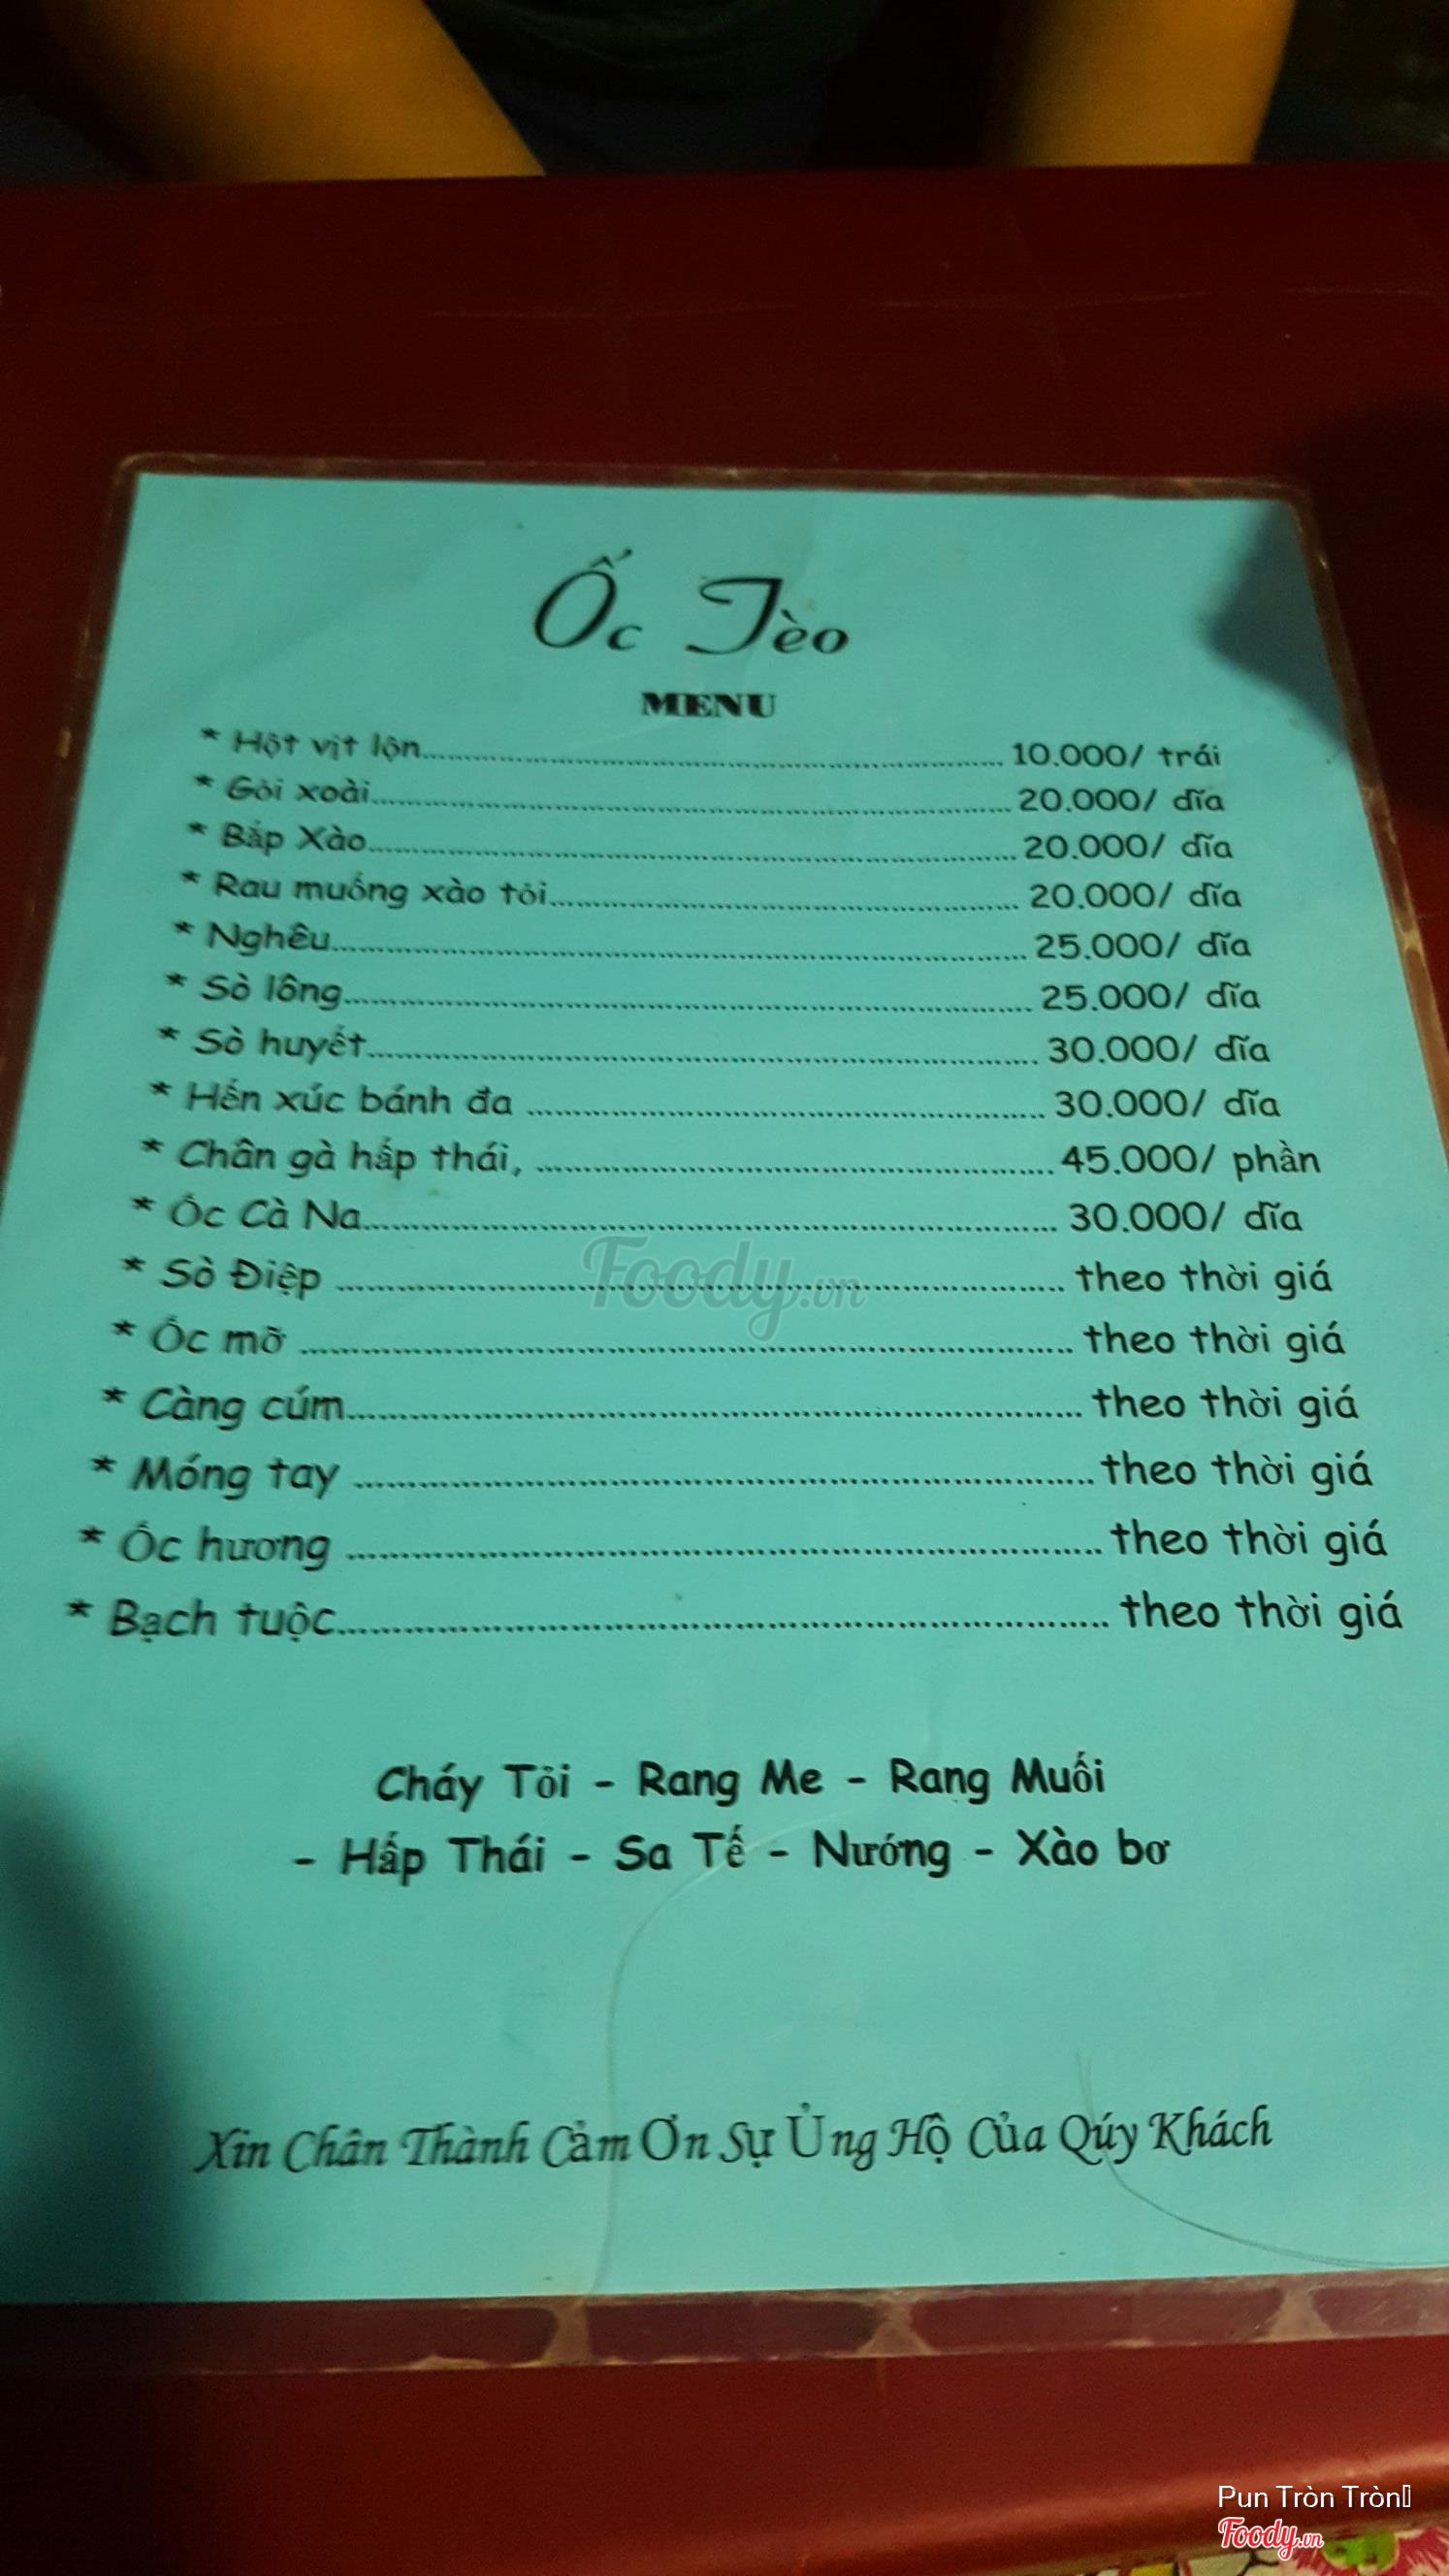 Ốc Tèo
MENU
* Hột vịt lộn........ 10.000/ trái
* Gỏi xoài........ 20.000/ dĩa
* Bắp Xào........ 20.000/ dĩa
* Rau muống xào tỏi........ 20.000/ dĩa
* Nghêu........ 25.000/ dĩa
* Sò lông........ 25.000/ dĩa
* Sò huyết........ 30.000/ dĩa
* Hến xúc bánh đa ........ 30.000/ dĩa
* Chân gà hấp thái, ........ 45.000/ phần
* Ốc Cà Na........ 30.000/ dĩa
* Sò Điệp ........ theo thời giá
* Ốc mỡ ........ theo thời giá
* Càng cúm........ theo thời giá
* Móng tay ........ theo thời giá
* Ốc hương ........ theo thời giá
* Bạch tuộc........ theo thời giá
Foody.vn
Cháy Tỏi - Rang Me - Rang Muối
- Hấp Thái - Sa Tế - Nướng - Xào bơ
Xin Chân Thành Cảm Ơn Sự Ủng Hộ Của Qúy Khách
Pun Tròn Tròn
Foody.vn